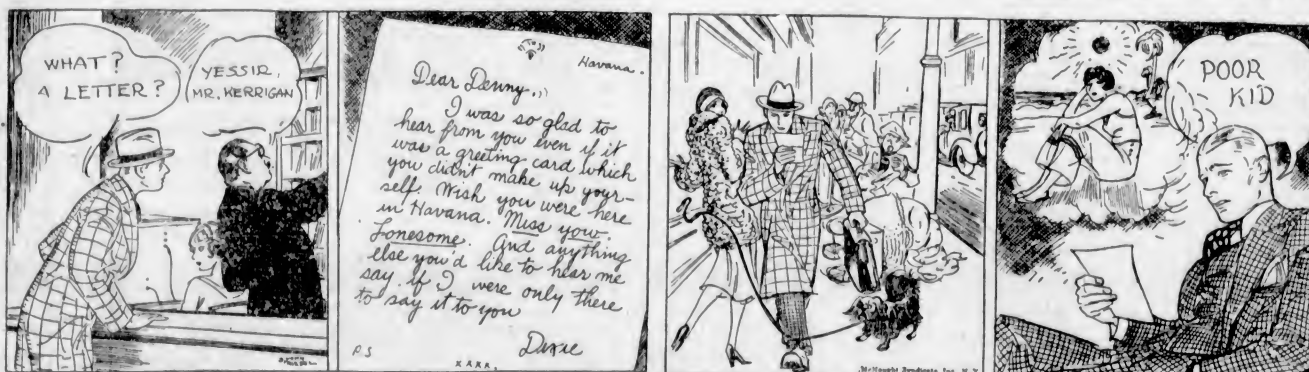 WHAT?
A LETTER?
YESSIR,
MR. KERRIGAN
Havana.
Dear Denny..,,
I was so glad to
hear from you even if it
was a greeting card which
you didn't make up your-
self. Wish you were here
in Havana. Miss yow.
Lonesome. And anything
else you'd like to hear me
say if I were only there
to say it to you
Dixie
P.S
XXXX,
McNaught Syndicate, Inc., N.Y.
POOR
KID